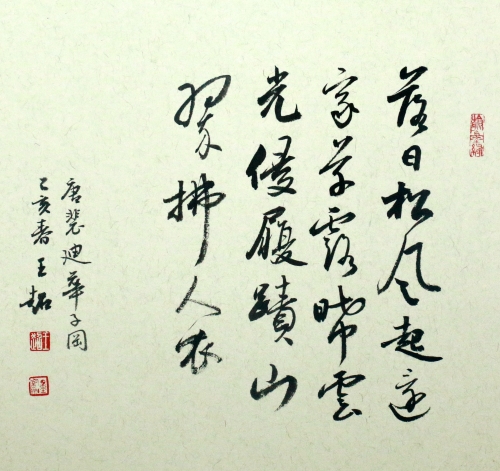 落日松風起還
家草露晞雲
光侵履蹟山
翠拂人衣
唐裴迪華子岡
己亥春王